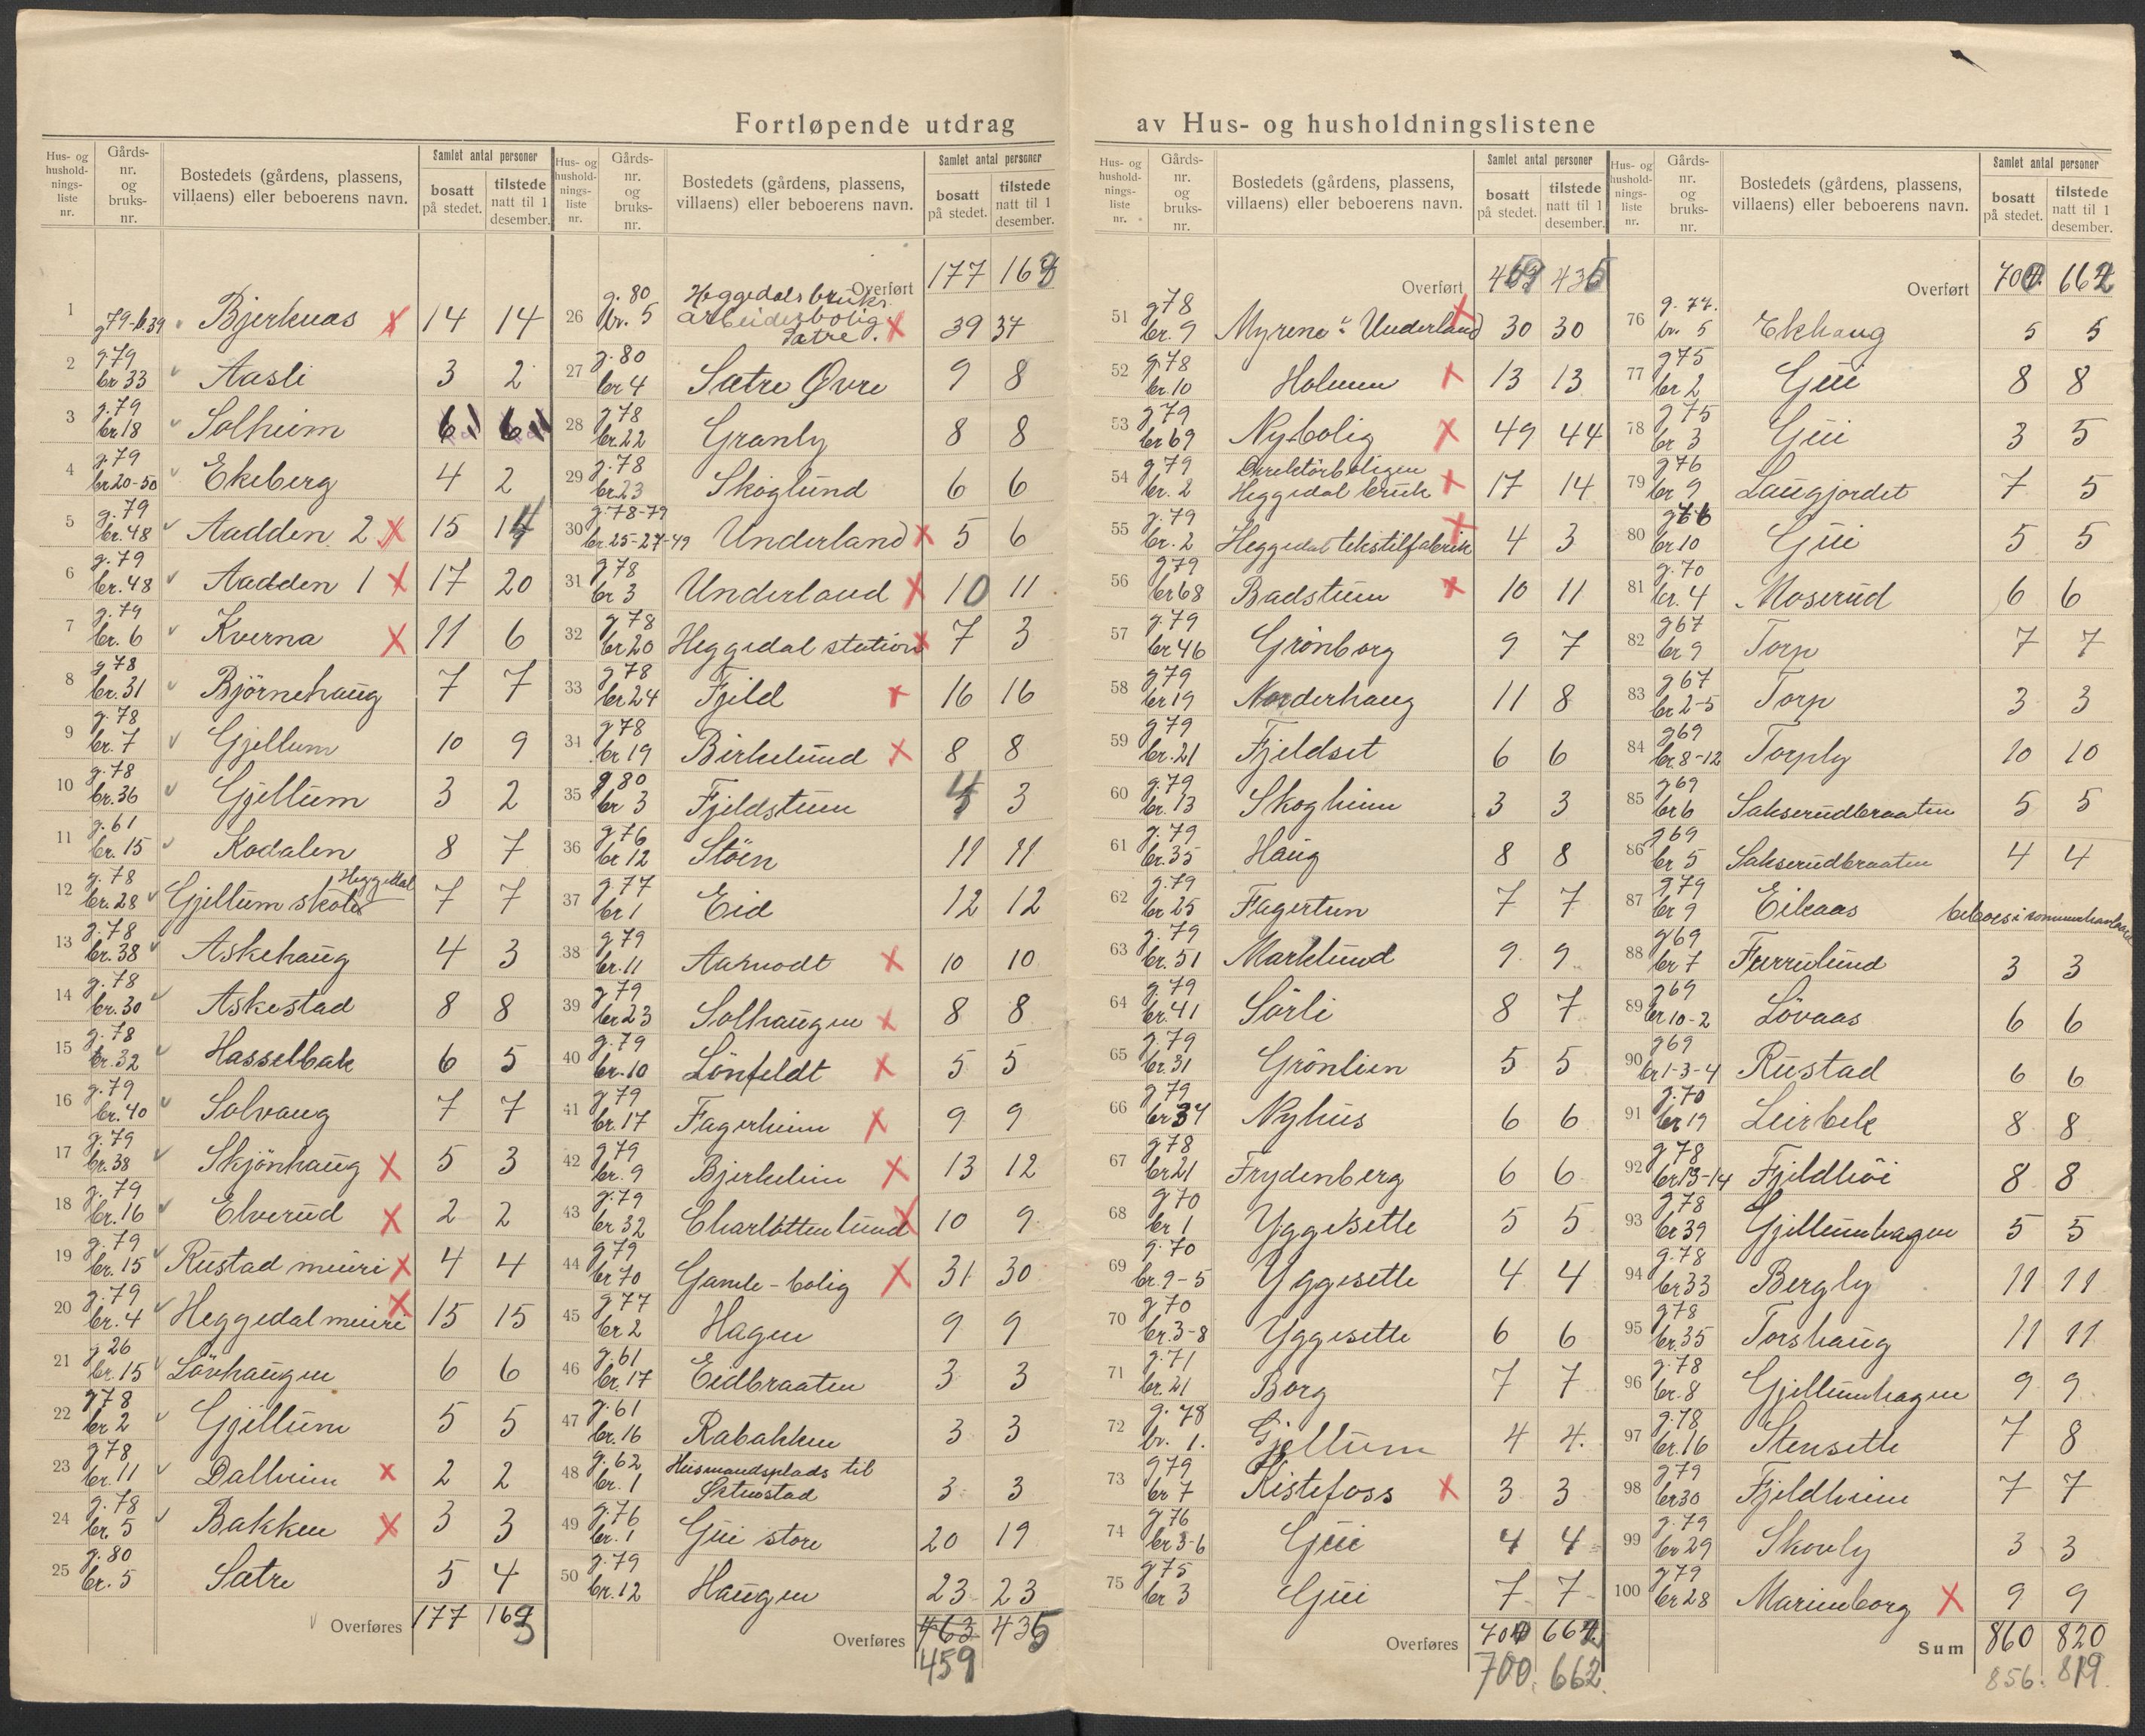 Fortløpende utdrag av Hus- og husholdningslistene
Hus- og hushold- nings- liste nr. | Gårds- nr. og bruks- nr. | Bostedets (gårdens, plassens, villaens) eller beboerens navn. | Samlet antal personer | bosatt på stedet. | tilstede natt til 1 desember.
1 g79-b.39 Bjerknas X 14 14
2 g.79 br 33 Aasli 3 2
3 g.79 br.18 Solheim 6 6
4 g.79 br.20-50 Ekeberg 4 2
5 g.79 br.48 Aadden 2 X 15 14
6 g.79 br.48 Aadden 1 X 17 20
7 g.79 br.6 Kverna X 11 6
8 g78 br.31 Björnehaug 7 7
9 g.78 br.7 Gjellum 10 9
10 g.78 br.36 Gjellum 3 2
11 g.61 br.15 Kodalen 8 7
12 g.78 br.28 Gjellum skole Heggedal 7 7
13 g.78 br.38 Askehaug 4 3
14 g.78 br.30 Askestad 8 8
15 g.78 br.32 Hasselbak 6 5
16 g.79 br.40 Solvang 7 7
17 g.79 br.38 Skjönhaug X 5 3
18 g.79 br.16 Elverud X 2 2
19 g.79 br.15 Rustad meieri X 4 4
20 g.79 br.4 Heggedal meieri X 15 15
21 g 26 br.15 Lövhaugen 6 6
22 g78 br 2 Gjellum 5 5
23 g78 br.11 Dalheim X 2 2
24 g.78 br.5 Bakken X 3 3
25 g.80 br.5 Sætre 5 4
Overføres 177 163
Hus- og hushold- nings- liste nr. | Gårds- nr. og bruks- nr. | Bostedets (gårdens, plassens, villaens) eller beboerens navn. | Samlet antal personer | bosatt på stedet. | tilstede natt til 1 desember.
Overført 177 163
26 g.80 br.5 Heggedals bruks arbeiderbolig. Sætre. X 39 37
27 g.80 br 4 Sætre Øvre 9 8
28 g78 br.22 Granly 8 8
29 g.78 br.23 Skoglund 6 6
30 g.78-79 br.25-27-49 Underland X 5 6
31 g78 br 3 Underland X 10 11
32 g78 br20 Heggedal station X 7 3
33 g78 br24 Fjeld X 16 16
34 g78 br 19 Birkelund X 8 8
35 g80 br 3 Fjeldstuen 4 3
36 g76 br 12 Stöen 11 11
37 g.77 br 1 Eid 12 12
38 g79 br.11 Aamodt X 10 10
39 g79 br23 Solhaugen X 8 8
40 g.79 br.10 Lönfeldt X 5 5
41 g79 br.17 Fagerheim X 9 9
42 g79 br.9 Bjerkelien X 13 12
43 g.79 br 32 Charlottenlund X 10 9
44 g79 br 70 Gamle-bolig X 31 30
45 g77 br 2 Hagen 9 9
46 g.61 br.17 Eidbraaten 3 3
47 g.61 br.16 Rabakken 3 3
48 g.62 br.1 Husmandsplads til 3 3
49 g.76 br.1 Gui store 20 19
50 g.79 br.12 Haugen 23 23
Overføres 463 435
459
Hus- og hushold- nings- liste nr. | Gårds- nr. og bruks- nr. | Bostedets (gårdens, plassens, villaens) eller beboerens navn. | Samlet antal personer | bosatt på stedet. | tilstede natt til 1 desember.
Overført 459 435
51 g78 br.9 Myrene Underland X 30 30
52 g.78 br.10 Holmen X 13 13
53 g79 br69 Ny-bolig X 49 44
54 g79 br.2 Direktörboligen Heggedal bruk X 17 14
55 g.79 br.2 Heggedal tekstilfabrik X 4 3
56 g79 br68 Badstuen X 10 11
57 g.79 br46 Grönborg 9 7
58 g79 br19 Norderhaug 11 8
59 g79 br.21 Fjeldset 6 6
60 g.79 br.13 Skogheim 3 3
61 g.79 br.35 Haug 8 8
62 g.79 br 25 Fagertun 7 7
63 g.79 br.51 Marklund 9 9
64 g79 br.41 Sörli 8 7
65 g.79 br.31 Grönlien 5 5
66 g79 br34 Nyhus 6 6
67 g78 br21 Frydenberg 6 6
68 g70 br 1 Yggesette 5 5
69 g.70 br.9-5 Yggesette 4 4
70 g70 br.3-8 Yggesette 6 6
71 g.71 br.21 Borg 7 7
72 g.78 br.1. Gjellum 4 4.
73 g79 br 7 Kistefoss X 3 3
74 g76 br3-6 Gui 4 4
75 g75 br 3 Gui 7 7
Overføres 704 664
700. 662.
Hus- og hushold- nings- liste nr. | Gårds- nr. og bruks- nr. | Bostedets (gårdens, plassens, villaens) eller beboerens navn. | Samlet antal personer | bosatt på stedet. | tilstede natt til 1 desember.
Overført 700 662
76 g.77. br.5 Ekhaug 5 5
77 g75 br 2 Gui 8 8
78 g75 br 3 Gui 3 5
79 g76 br 9 Laugjordet 7 5
80 g76 br10 Gui 5 5
81 g.70 br.4 Moserud 6 6
82 g67 br 9 Torp 7 7
83 g67 br 2-5 Torp 3 3
84 g69 br.8-12 Torply 10 10
85 g69 br6 Sakserudbraaten 5 5
86 g69 br 5 Sakserudbraaten 4 4
87 g79 br 9 Eikaas beboes i sommerhalvaaret
88 g69 br 7 Furrulund 3 3
89 g69 br 10-2 Lövaas 6 6
90 g69 br1-3-4 Rustad 6 6
91 g.70 br19 Leirbek 8 8
92 g78 br13-14 Fjeldhöi 8 8
93 g78 br39 Gjellumhagen 5 5
94 g.78 br33 Bergly 11 11
95 g78 br.35 Torshaug 11 11
96 g.78 br.8 Gjellumhagen 9 9
97 g.78 br.16 Stensette 7 8
98 g79 br30 Fjeldheim 7 7
99 g.79 br 29 Skovly 3 3
100 g79 br28 Marienborg X 9 9
Sum 860 820
856. 819.